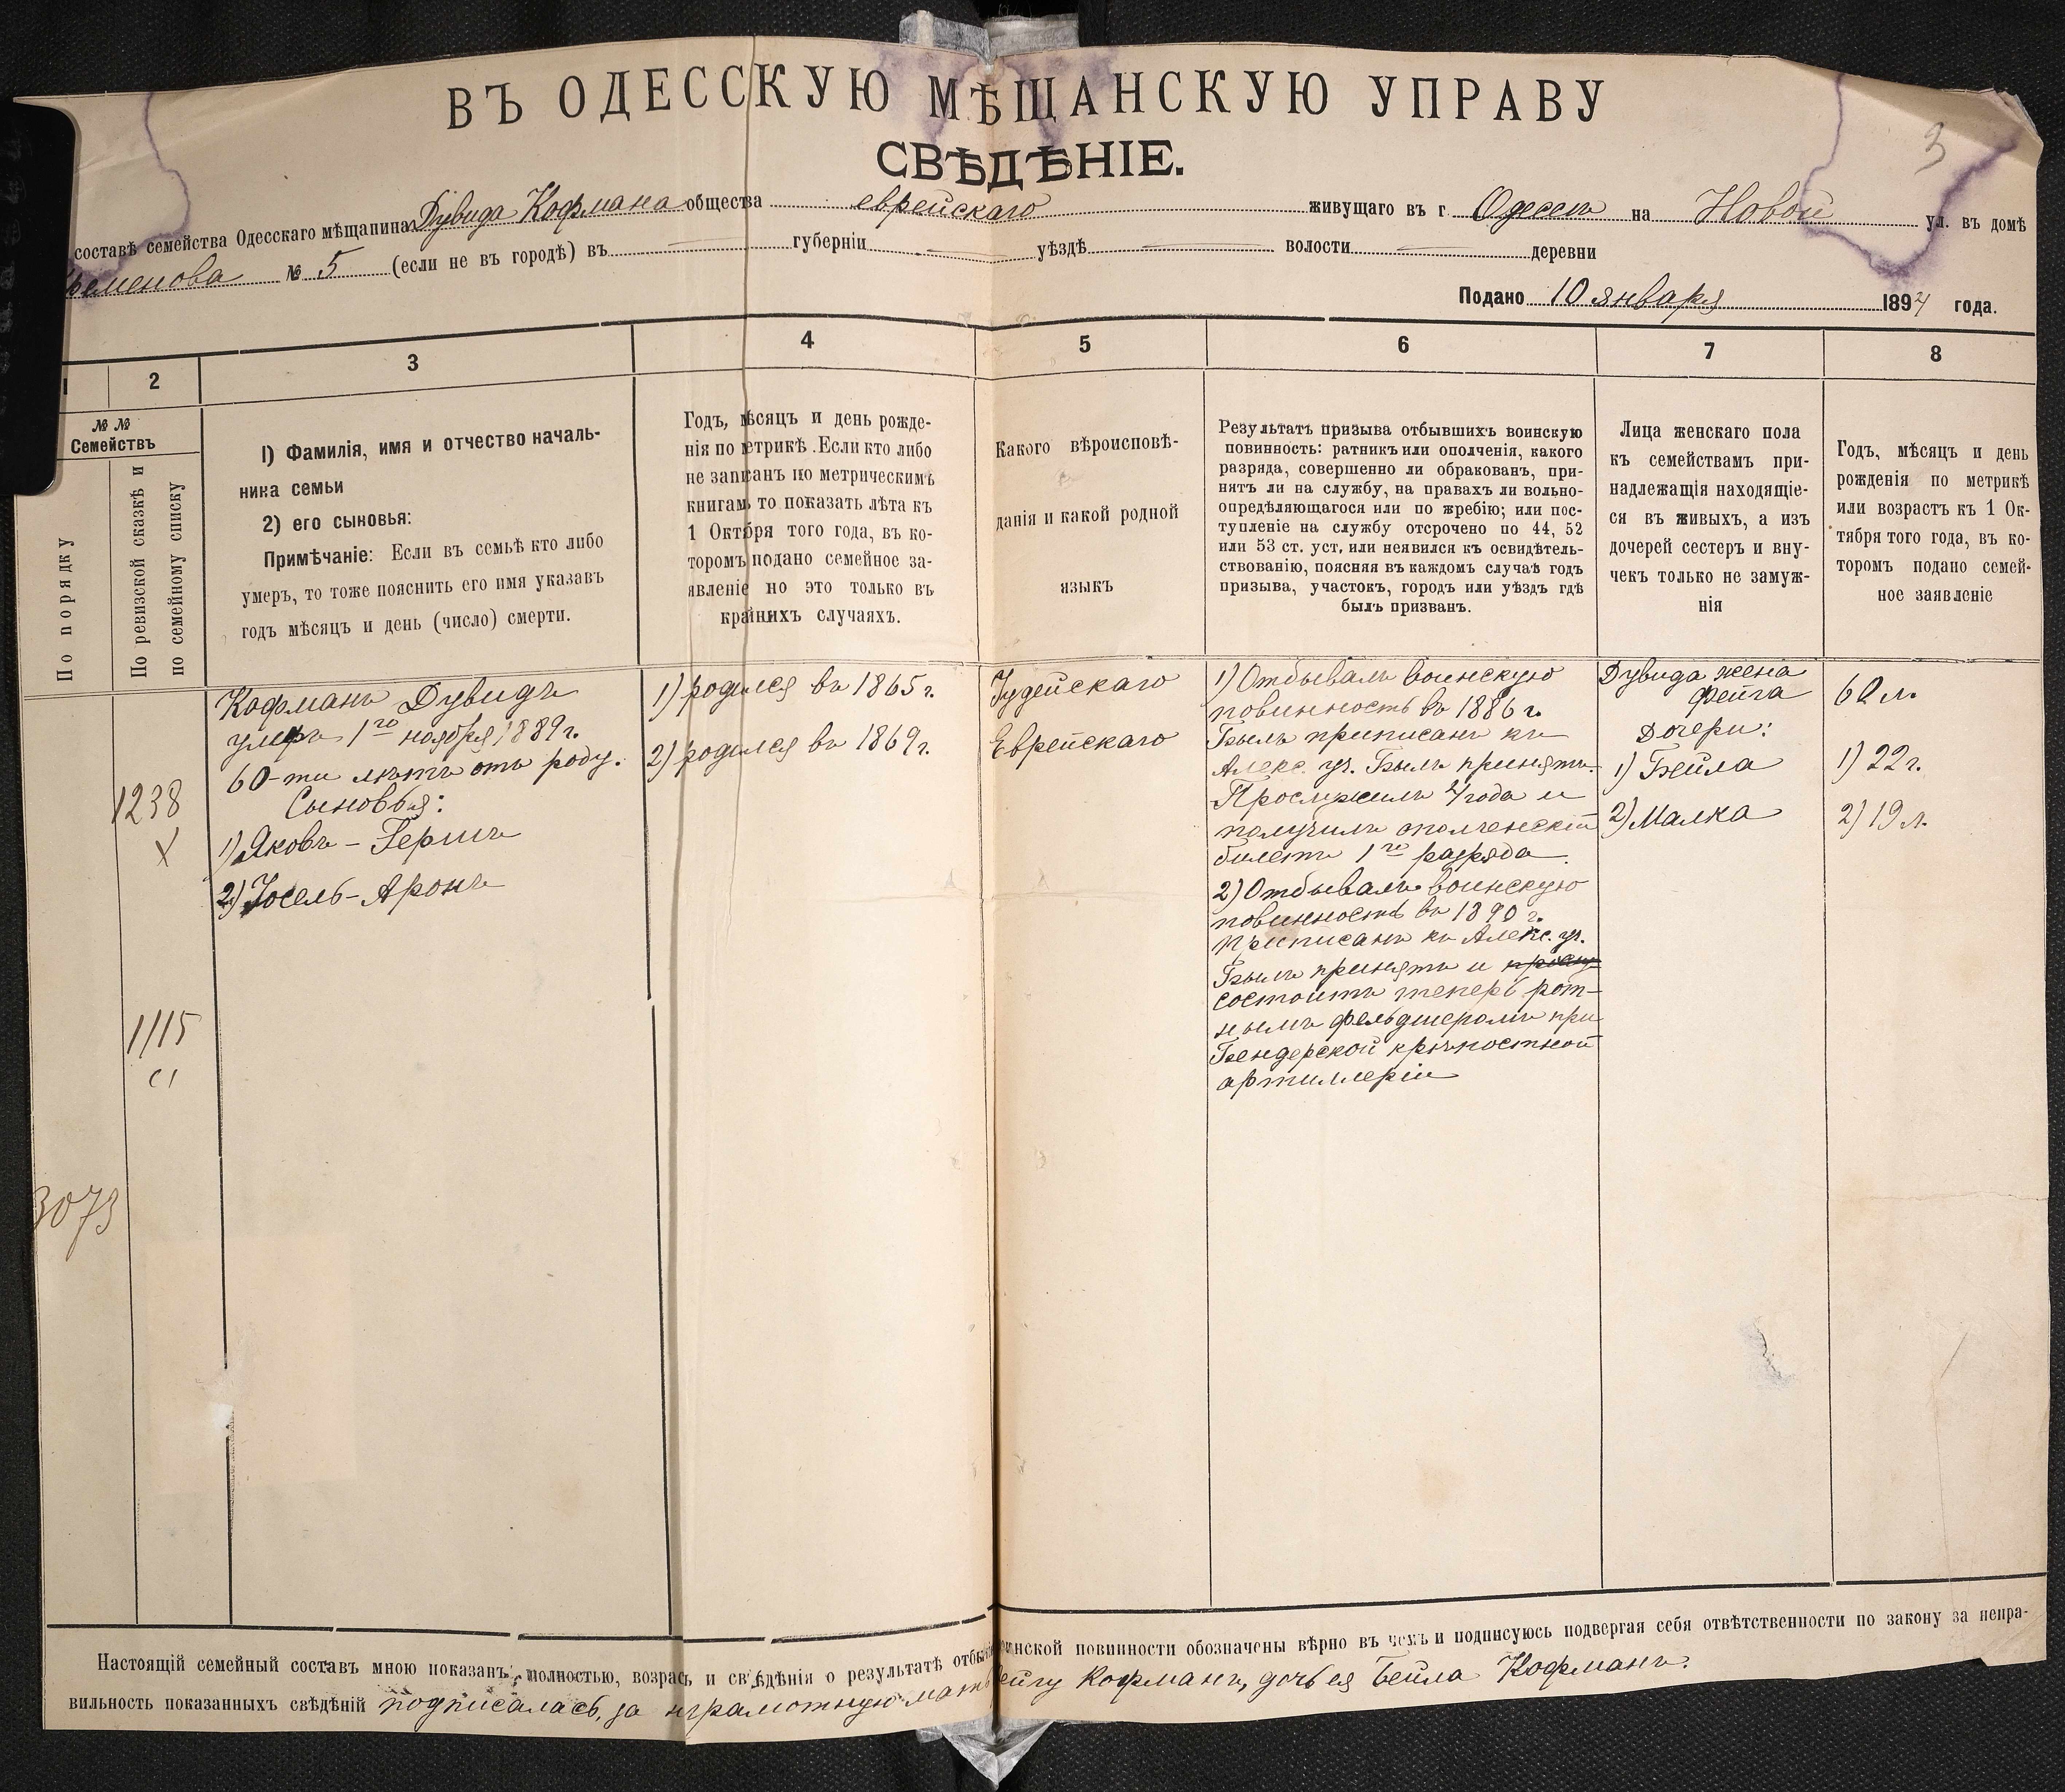 ВЪ ОДЕССКУЮ МѢЩАНСКУЮ УПРАВУ
СВѢДѢНІЕ.
3
составѣ семейства Одесскаго мѣщанина Дувида Кофмана общества еврейскаго живущаго въ г. Одессѣ на Новой ул. въ домѣ
№ 5 (если не въ городѣ) въ губерніи уѣздѣ волости деревни
Подано 10 января 1894 года.
1
2
3
4
5
6
7
8
№№
Семействъ
По порядку
По ревизской сказкѣ и
по семейному списку
1) Фамилія, имя и отчество началь-
ника семьи
2) его сыновья:
Примѣчаніе: Если въ семьѣ кто либо
умеръ, то тоже пояснить его имя указавъ
годъ мѣсяцъ и день (число) смерти.
Годъ, мѣсяцъ и день рожде-
нія по метрикѣ. Если кто либо
не записанъ по метрическимъ
книгамъ то показать лѣта къ
1 Октября того года, въ ко-
торомъ подано семейное за-
явленіе но это только въ
крайнихъ случаяхъ.
Какого вѣроисповѣ-
данія и какой родной
языкъ
Результатъ призыва отбывшихъ воинскую
повинность: ратникъ или ополченія, какого
разряда, совершенно ли обракованъ, при-
нятъ ли на службу, на правахъ ли вольно-
опредѣляющагося или по жребію; или пос-
тупленіе на службу отсрочено по 44, 52
или 53 ст. уст, или неявился къ освидѣтель-
ствованію, поясняя въ каждомъ случаѣ годъ
призыва, участокъ, городъ или уѣздъ гдѣ
былъ призванъ.
Лица женскаго пола
къ семействамъ при-
надлежащія находящіе-
ся въ живыхъ, а изъ
дочерей сестеръ и вну-
чекъ только не замуж-
нія
Годъ, мѣсяцъ и день
рожденія по метрикѣ
или возрастъ къ 1 Ок-
тября того года, въ ко-
торомъ подано семей-
ное заявленіе
1238
X
1115
3073
Кофманъ Дувидъ
умеръ 1го ноября 1889 г.
60-ти лѣтъ отъ роду.
Сыновья:
1) Яковъ-Гершъ
2) Іосель-Аронъ
1) родился въ 1865 г.
2) родился въ 1869 г.
Іудейскаго
Еврейскаго
1) Отбывалъ воинскую
повинность въ 1886 г.
Былъ приписанъ къ
Алекс. уч. Былъ принятъ.
Прослужилъ 4 года и
получилъ ополченскій
билетъ 1го разряда.
2) Отбывалъ воинскую
повинность въ 1890 г.
приписанъ къ Алекс. уч.
Былъ принятъ и
состоитъ теперь рот-
нымъ фельдшеромъ при
Бендерской крѣпостной
артиллеріи
Дувида жена
Фейга
Дочери:
1) Бейла
2) Малка
60 л.
1) 22 г.
2) 19 л.
Настоящій семейный составъ мною показанъ полностью, возрасъ и свѣдѣнія о результатѣ отбыванія воинской повинности обозначены вѣрно въ чемъ и подписуюсь подвергая себя отвѣтственности по закону за непра-
вильность показанныхъ свѣдѣній подписалась, за неграмотную мать Фейгу Кофманъ, дочь ея Бейла Кофманъ.